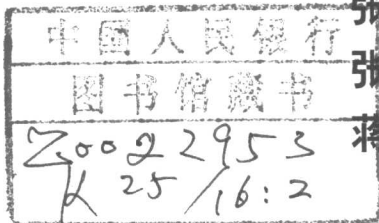 中国人民银行
图书馆藏书
Z0022953
K25/16:2
张
张
蒋